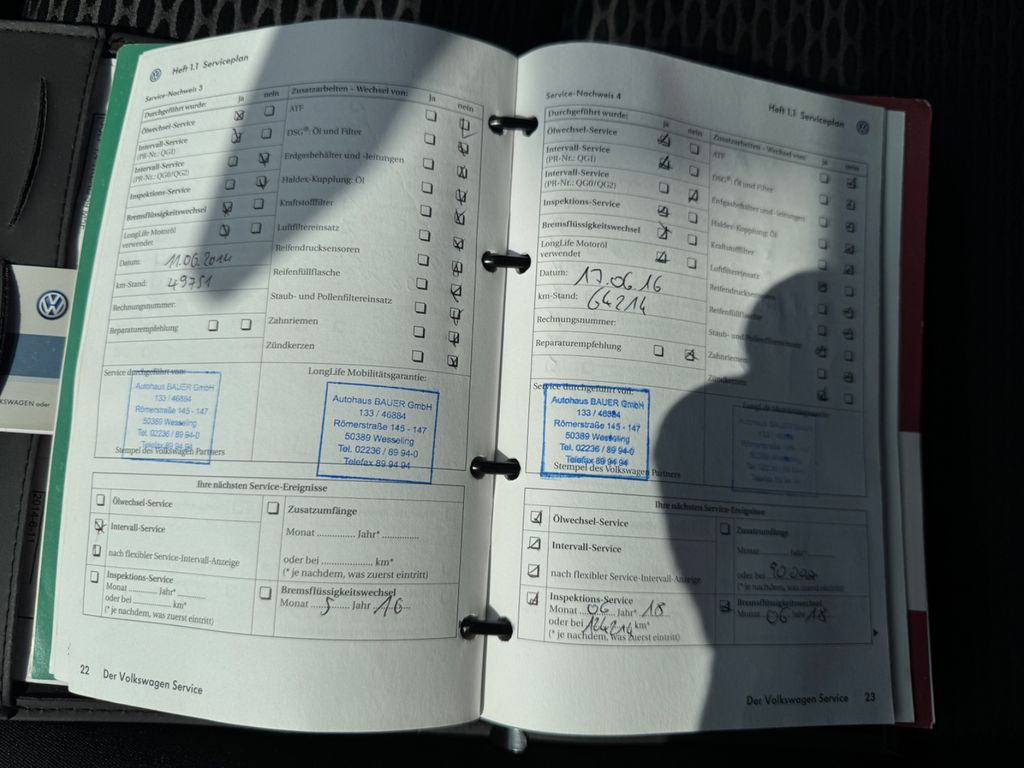 Heft 1.1 Serviceplan
Service-Nachweis 3
Durchgeführt wurde: ja nein
Ölwechsel-Service
Intervall-Service
(PR-Nr.: QG1)
Intervall-Service
(PR-Nr.: QG0/QG2)
Inspektions-Service
Bremsflüssigkeitswechsel
LongLife Motoröl
verwendet
Datum: 11.06.2014
km-Stand: 49751
Rechnungsnummer:
Reparaturempfehlung
Zusatzarbeiten – Wechsel von: ja nein
ATF
DSG®: Öl und Filter
Erdgasbehälter und -leitungen
Haldex-Kupplung: Öl
Kraftstofffilter
Luftfiltereinsatz
Reifendrucksensoren
Reifenfüllflasche
Staub- und Pollenfiltereinsatz
Zahnriemen
Zündkerzen
Service durchgeführt von:
Autohaus BAUER GmbH
133 / 46884
Römerstraße 145 - 147
50389 Wesseling
Tel. 02236 / 89 94-0
Telefax 89 94 94
Stempel des Volkswagen Partners
LongLife Mobilitätsgarantie:
Autohaus BAUER GmbH
133 / 46884
Römerstraße 145 - 147
50389 Wesseling
Tel. 02236 / 89 94-0
Telefax 89 94 94
Ihre nächsten Service-Ereignisse
Ölwechsel-Service
Intervall-Service
nach flexibler Service-Intervall-Anzeige
Inspektions-Service
Monat ........ Jahr* ........
oder bei ................ km*
(* je nachdem, was zuerst eintritt)
Zusatzumfänge
Monat .............. Jahr* ..............
oder bei ...................... km*
(* je nachdem, was zuerst eintritt)
Bremsflüssigkeitswechsel
Monat 5 Jahr 16
22 Der Volkswagen Service
KSWAGEN oder
Heft 1.1 Serviceplan
Service-Nachweis 4
Durchgeführt wurde: ja nein
Ölwechsel-Service
Intervall-Service
(PR-Nr.: QG1)
Intervall-Service
(PR-Nr.: QG0/QG2)
Inspektions-Service
Bremsflüssigkeitswechsel
LongLife Motoröl
verwendet
Datum: 17.06.16
km-Stand: 64214
Rechnungsnummer:
Reparaturempfehlung
Zusatzarbeiten – Wechsel von: ja nein
ATF
DSG®: Öl und Filter
Erdgasbehälter und -leitungen
Haldex-Kupplung: Öl
Kraftstofffilter
Luftfiltereinsatz
Reifendrucksensoren
Reifenfüllflasche
Staub- und Pollenfiltereinsatz
Zahnriemen
Zündkerzen
Service durchgeführt von:
Autohaus BAUER GmbH
133 / 46884
Römerstraße 145 - 147
50389 Wesseling
Tel. 02236 / 89 94-0
Telefax 89 94 94
Stempel des Volkswagen Partners
LongLife Mobilitätsgarantie:
Ihre nächsten Service-Ereignisse
Ölwechsel-Service
Intervall-Service
nach flexibler Service-Intervall-Anzeige
Inspektions-Service
Monat 06 Jahr* 18
oder bei 124214 km*
(* je nachdem, was zuerst eintritt)
Zusatzumfänge
Monat ........ Jahr* ........
oder bei 90.000
(* je nachdem, was zuerst eintritt)
Bremsflüssigkeitswechsel
Monat 06 Jahr 18
Der Volkswagen Service 23